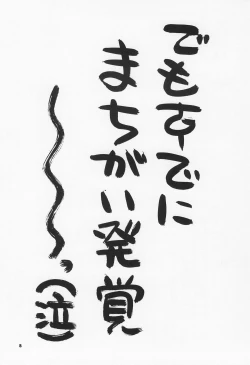 でもすでに
まちがい発覚
〜〜〜〜っ(泣)